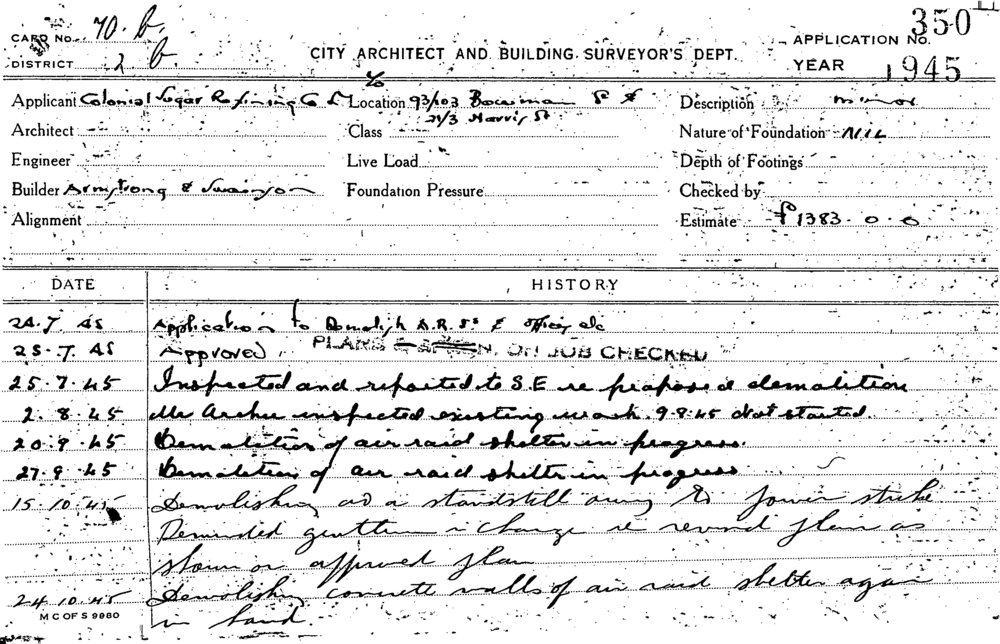 CARD No. 70.b.
DISTRICT 2 b.
CITY ARCHITECT AND BUILDING SURVEYOR'S DEPT.
APPLICATION No. 350
YEAR 1945
Applicant Colonial Sugar Refining Co L Location 93/103 Bowman St &
21/3 Harris St
Description minor
Architect
Class
Nature of Foundation NIL
Engineer
Live Load
Depth of Footings
Builder Armstrong & Swainson
Foundation Pressure
Checked by
Alignment
Estimate £1383.0.0
DATE
HISTORY
24.7.45 Application to Demolish A.R. Ss & offices etc
25.7.45 Approved. PLANS & SPECN. ON JOB CHECKED
25.7.45 Inspected and reported to S.E re proposed demolition
2.8.45 Mr Archer inspected existing work. 9.8.45 Not started.
20.9.45 Demolition of air raid shelter in progress.
27.9.45 Demolition of air raid shelter in progress
15.10.45 Demolishing at a standstill owing to power strike
in change re revised plan as
shown on approved plan
24.10.45 Demolishing concrete walls of air raid shelter again
in hand.
M C OF S 9980